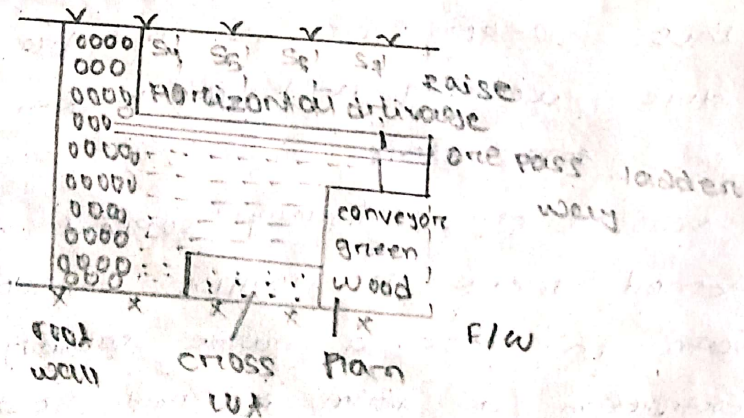 S4' S5' S6' S7'
raise
Horizontal drivage
ore pass
ladder
way
conveyore
green
wood
F/W
wall
cross
cut